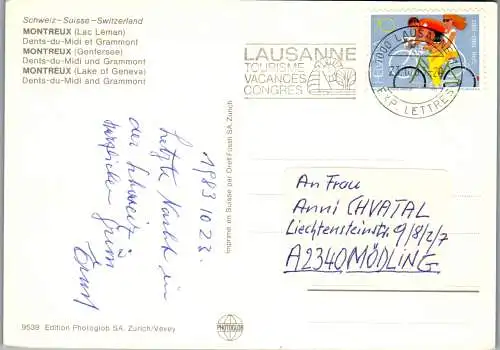 Schweiz - Suisse - Switzerland
MONTREUX (Lac Léman)
Dents-du-Midi et Grammont
MONTREUX (Genfersee)
Dents-du-Midi und Grammont
MONTREUX (Lake of Geneva)
Dents-du-Midi and Grammont
LAUSANNE
TOURISME
VACANCES
CONGRES
1000 LAUSANNE
EXP. LETTRES
1983 10 23.
Letzte Nacht in
der Schweiz
herzlichen Grüm
Ernst
Imprimé en Suisse par Orell Füssli SA, Zurich
An Frau
Anni CHVATAL
Liechtensteinstr. 9/8/2/7
A2340 MÖDLING
9539 Edition Photoglob SA, Zurich/Vevey
PHOTOGLOB